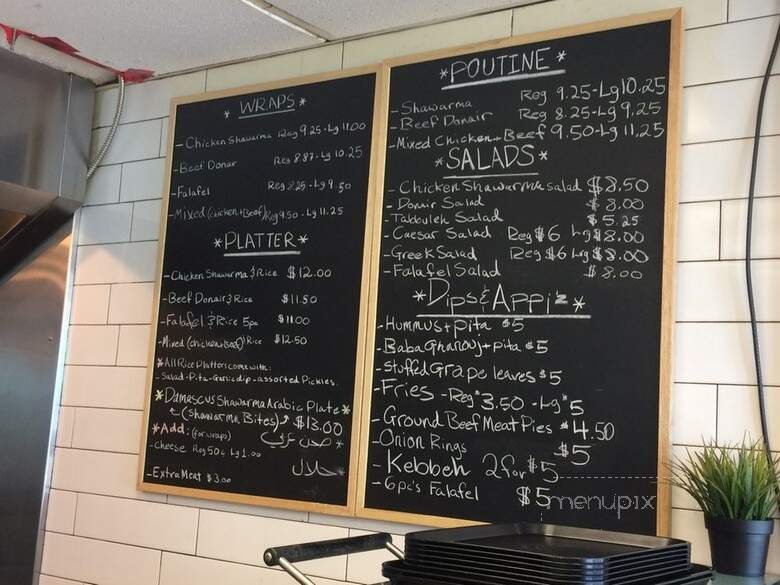 * WRAPS *
- Chicken Shawarma Reg 9.25 - Lg 11.00
- Beef Donar Reg 8.87 - Lg 10.25
- Falafel Reg 8.25 - Lg 9.50
- Mixed (chicken + Beef) Reg 9.50 - Lg 11.25
* PLATTER *
- Chicken Shawarma & Rice $12.00
- Beef Donair & Rice $11.50
- Falafel & Rice 5pc $11.00
- Mixed (chicken & Beef) Rice $12.50
* All Rice Platters come with:
- Salad - Pita - Garlic dip - assorted Pickles.
* Damascus Shawarma Arabic Plate *
(Shawarma Bites) $13.00
صحن عربي *
* Add: (for wraps)
- Cheese Reg 50¢ Lg 1.00
حلال
- Extra Meat $3.00
* POUTINE *
- Shawarma Reg 9.25 - Lg 10.25
- Beef Donair Reg 8.25 - Lg 9.25
- Mixed Chicken + Beef 9.50 - Lg 11.25
* SALADS *
- Chicken Shawarma salad $8.50
- Donair Salad $8.00
- Tabbuleh Salad $5.25
- Caesar Salad Reg $6 Lrg $8.00
- Greek Salad Reg $6 Lrg $8.00
- Falafel Salad $8.00
* Dips & Appi'z *
- Hummus + pita $5
- Baba Ghanouj + pita $5
- Stuffed Grape leaves $5
- Fries - Reg 3.50 - Lg 5
- Ground Beef Meat Pies $4.50
- Onion Rings $5
- Kebbeh 2 for $5
- 6 pc's Falafel $5
menupix